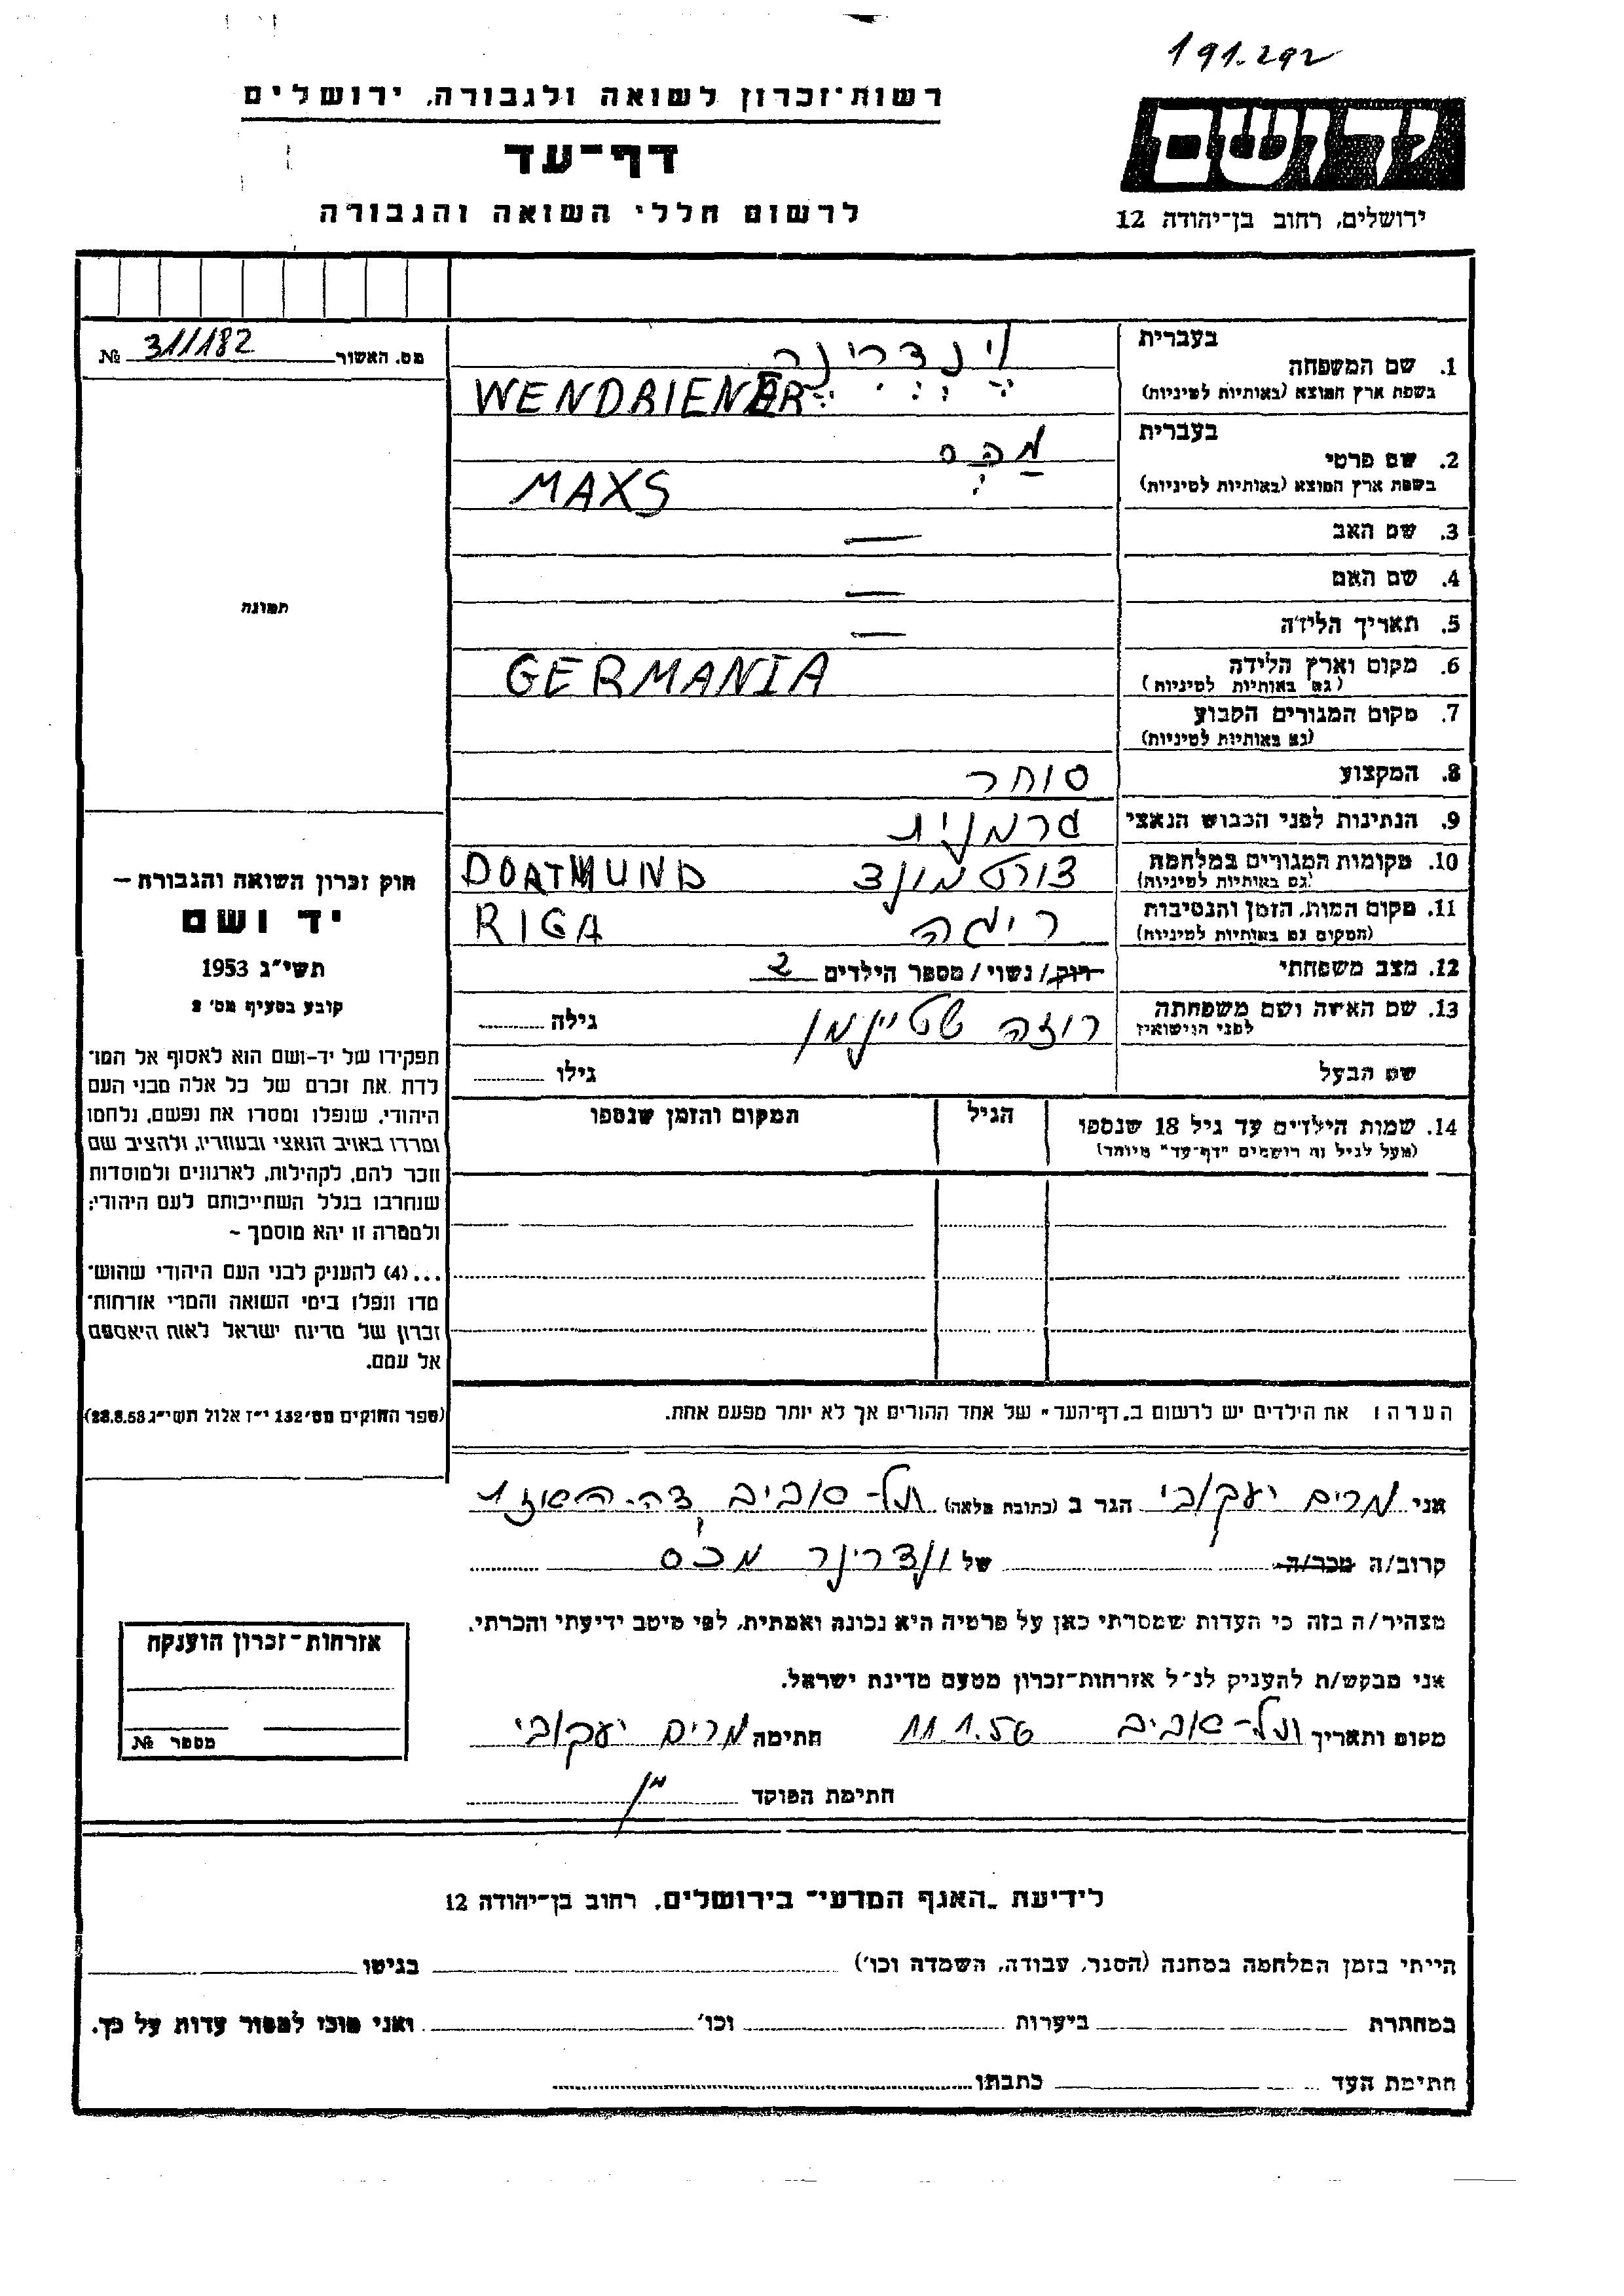 191.292
רשות־זכרון לשואה ולגבורה, ירושלים
דף־עד
לרשום חללי השואה והגבורה
יד ושם
ירושלים, רחוב בן־יהודה 12
מס. האשור 311182 №
בעברית
1. שם המשפחה
בשפת ארץ המוצא (באותיות לטיניות) WENDRIENER
בעברית
2. שם פרטי
בשפת ארץ המוצא (באותיות לטיניות) MAXS
3. שם האב —
4. שם האם —
5. תאריך הלידה —
תמונה
6. מקום וארץ הלידה GERMANIA
(גם באותיות לטיניות)
7. מקום המגורים הקבוע
(גם באותיות לטיניות)
8. המקצוע סוחר
9. הנתינות לפני הכבוש הנאצי גרמנית
10. מקומות המגורים במלחמה דורטמונד DORTMUND
(גם באותיות לטיניות)
11. מקום המות, הזמן והנסיבות ריגה RIGA
(המקום גם באותיות לטיניות)
12. מצב משפחתי רווק/ נשוי/ מספר הילדים 2
13. שם האשה ושם משפחתה רוזה שטיינמן גילה
לפני הנישואין
שם הבעל גילו
14. שמות הילדים עד גיל 18 שנספו הגיל המקום והזמן שנספו
(מעל לגיל זה רושמים "דף־עד" מיוחד)
חוק זכרון השואה והגבורה –
יד ושם
תשי"ג 1953
קובע בסעיף מס' 2
תפקידו של יד־ושם הוא לאסוף אל המו־
לדת את זכרם של כל אלה מבני העם
היהודי, שנפלו ומסרו את נפשם, נלחמו
ומרדו באויב הנאצי ובעוזריו, ולהציב שם
וזכר להם, לקהילות, לארגונים ולמוסדות
שנחרבו בגלל השתייכותם לעם היהודי;
ולמטרה זו יהא מוסמך –
...(4) להעניק לבני העם היהודי שהוש־
מדו ונפלו בימי השואה והמרי אזרחות־
זכרון של מדינת ישראל לאות היאספם
אל עמם.
(ספר החוקים מס' 132 י"ז אלול תשי"ג 28.8.53)
הערה: את הילדים יש לרשום ב"דף־העד" של אחד ההורים אך לא יותר מפעם אחת.
אני מרים יעקובי הגר ב (כתובת מלאה) תל-אביב
קרוב/ה מכר/ה של ונדרינר מכס
מצהיר/ה בזה כי העדות שמסרתי כאן על פרטיה היא נכונה ואמתית, לפי מיטב ידיעתי והכרתי.
אני מבקש/ת להעניק לנ"ל אזרחות־זכרון מטעם מדינת ישראל.
מקום ותאריך תל-אביב 11.1.56 חתימה מרים יעקובי
חתימת הפוקד
אזרחות־זכרון הוענקה
מספר №
לידיעת "האגף המדעי" בירושלים, רחוב בן־יהודה 12
הייתי בזמן המלחמה במחנה (הסגר, עבודה, השמדה וכו') בגיטו
במחתרת ביערות וכו' ואני מוכן למסור עדות על כך.
חתימת העד כתבתו